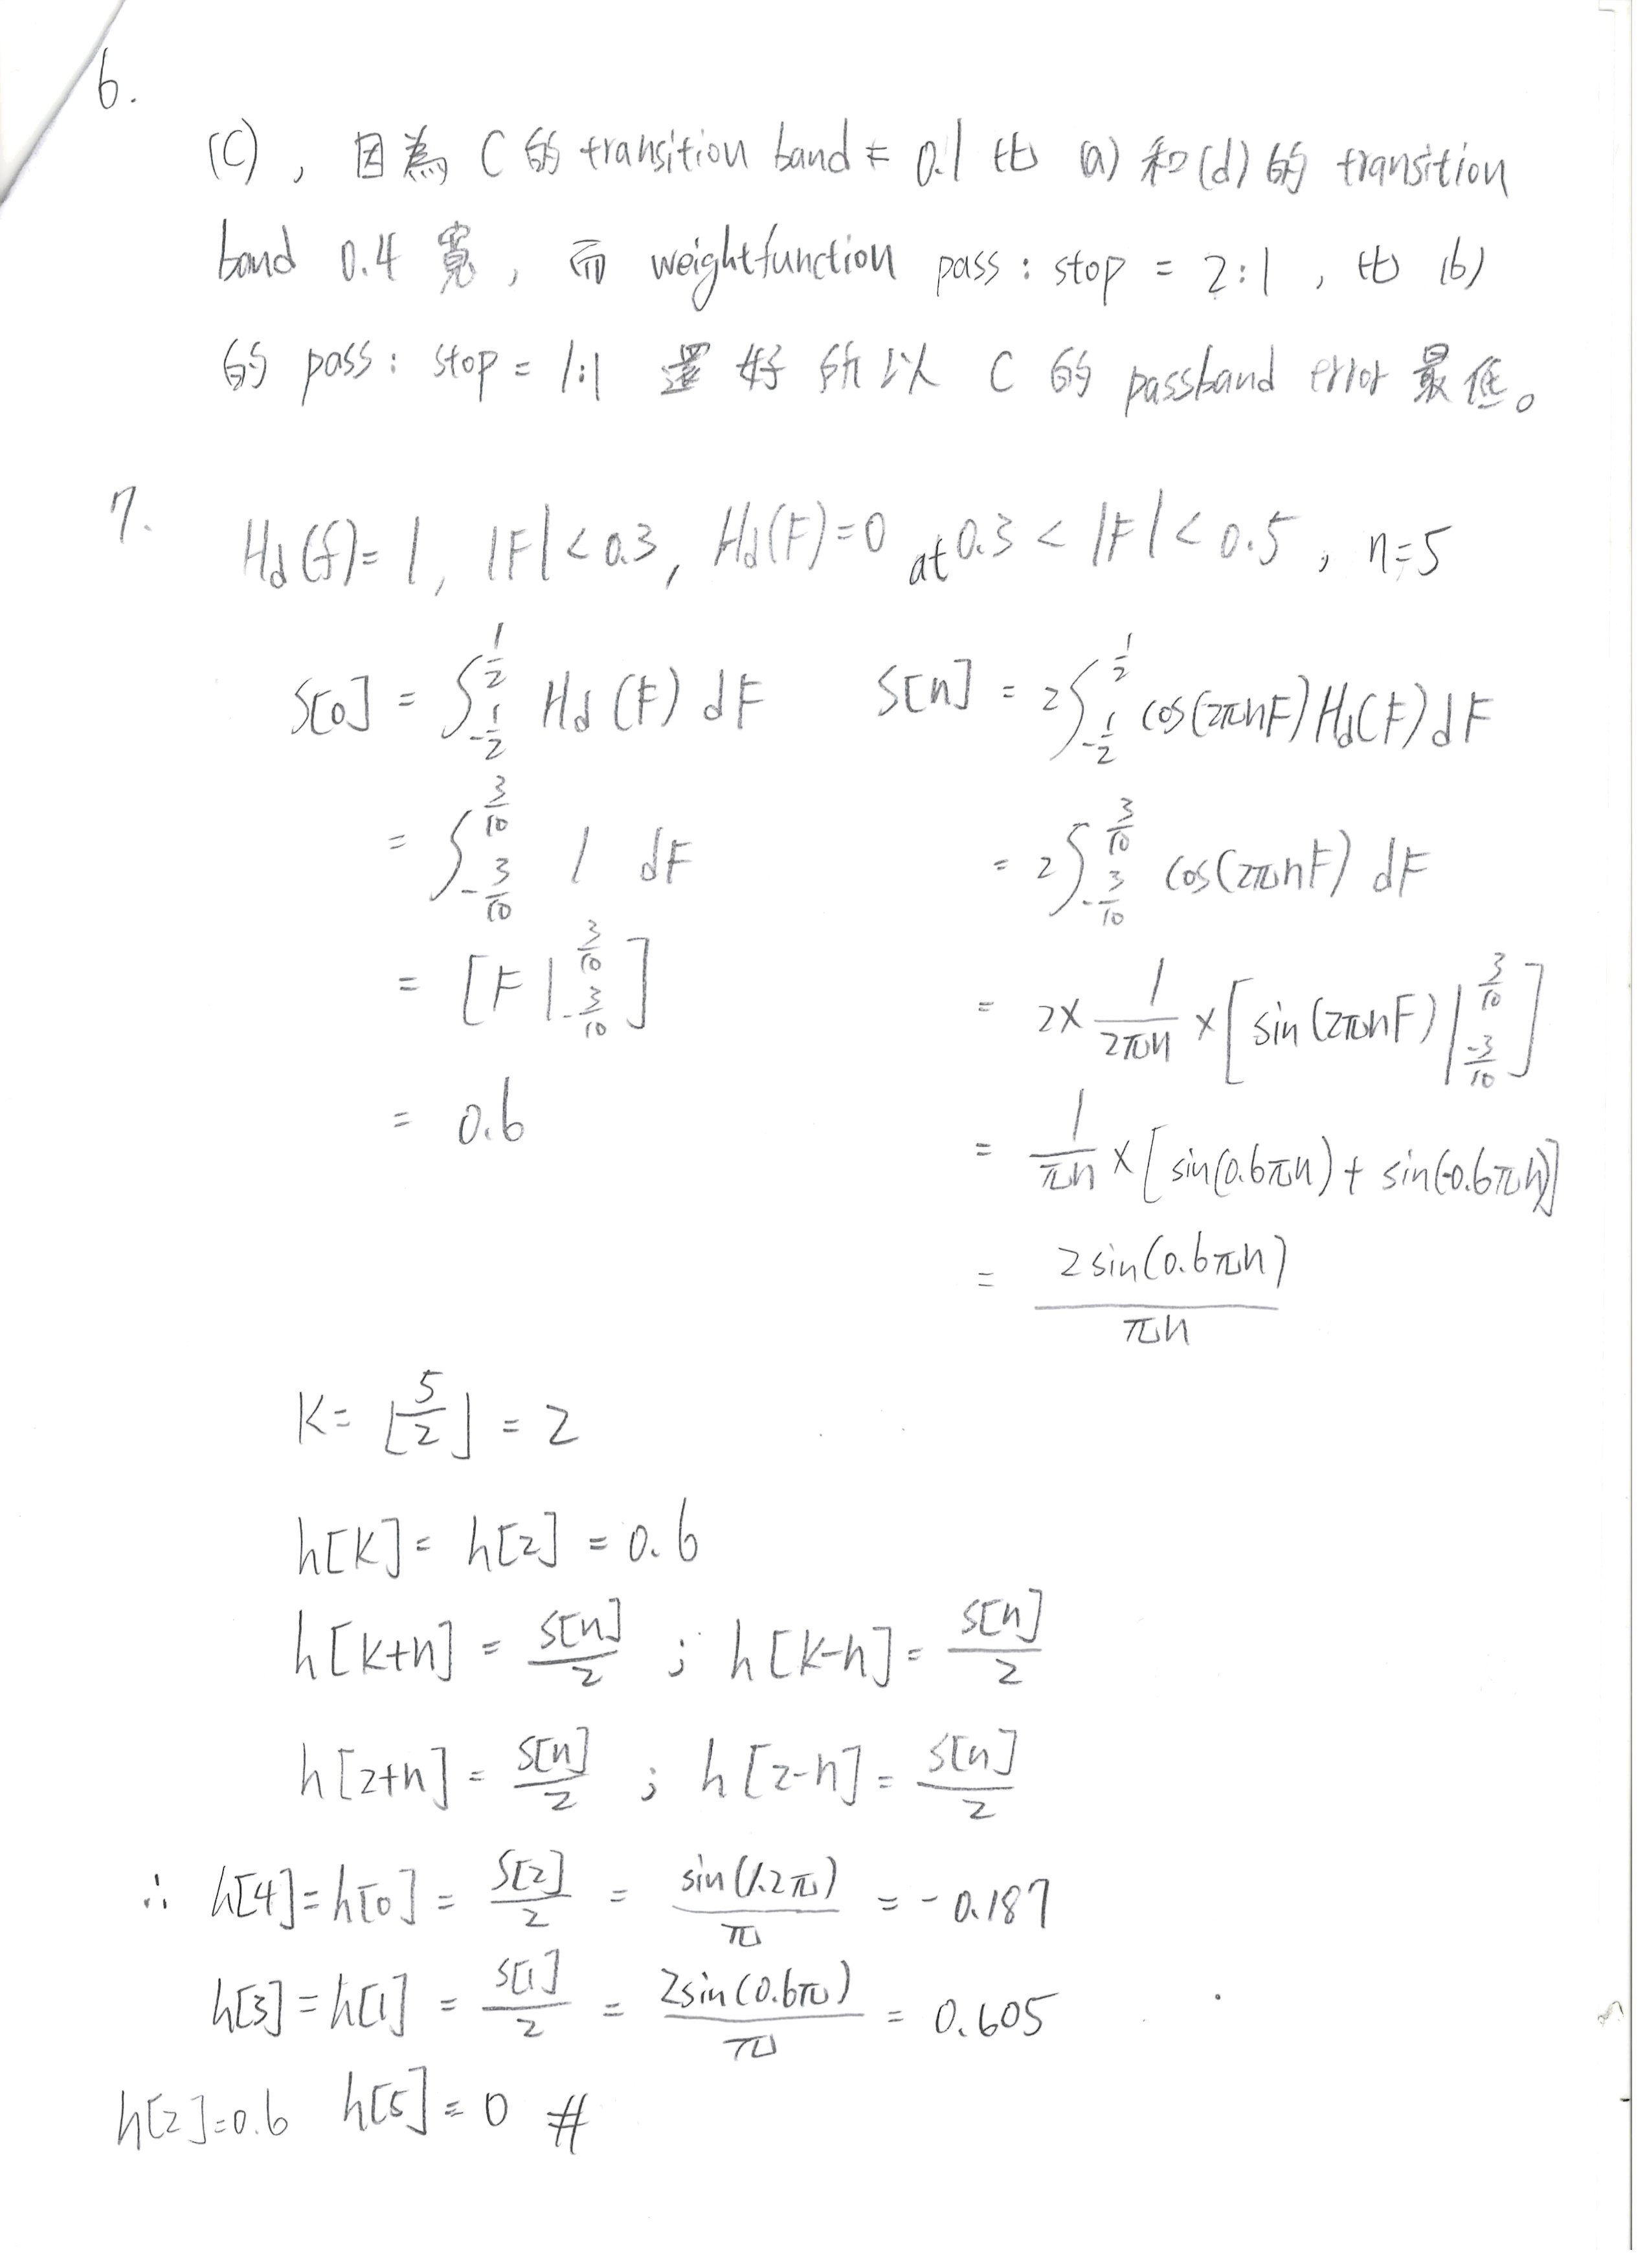 6.
(C), 因為 C 的 transition band = 0.1 比 (a) 和 (d) 的 transition
band 0.4 寬, 而 weightfunction pass : stop = 2:1, 比 (b)
的 pass : stop = 1:1 還好 所以 C 的 passband error 最低。
7. Hd(f)=1, |F|<0.3, Hd(F)=0 at 0.3 < |F| < 0.5, n=5
s[0] = ∫_{-1/2}^{1/2} Hd(F) dF
= ∫_{-3/10}^{3/10} 1 dF
= [F|_{-3/10}^{3/10}]
= 0.6
s[n] = 2∫_{-1/2}^{1/2} cos(2πnF) Hd(F) dF
= 2∫_{-3/10}^{3/10} cos(2πnF) dF
= 2× 1/(2πn) × [sin(2πnF)|_{-3/10}^{3/10}]
= 1/(πn) × [sin(0.6πn) + sin(-0.6πn)]
= 2sin(0.6πn)/(πn)
K = ⌊5/2⌋ = 2
h[k] = h[2] = 0.6
h[k+n] = s[n]/2 ; h[k-n] = s[n]/2
h[2+n] = s[n]/2 ; h[2-n] = s[n]/2
∴ h[4]=h[0] = s[2]/2 = sin(1.2π)/π = -0.187
h[3]=h[1] = s[1]/2 = 2sin(0.6π)/π = 0.605
h[2]=0.6 h[5]=0 #